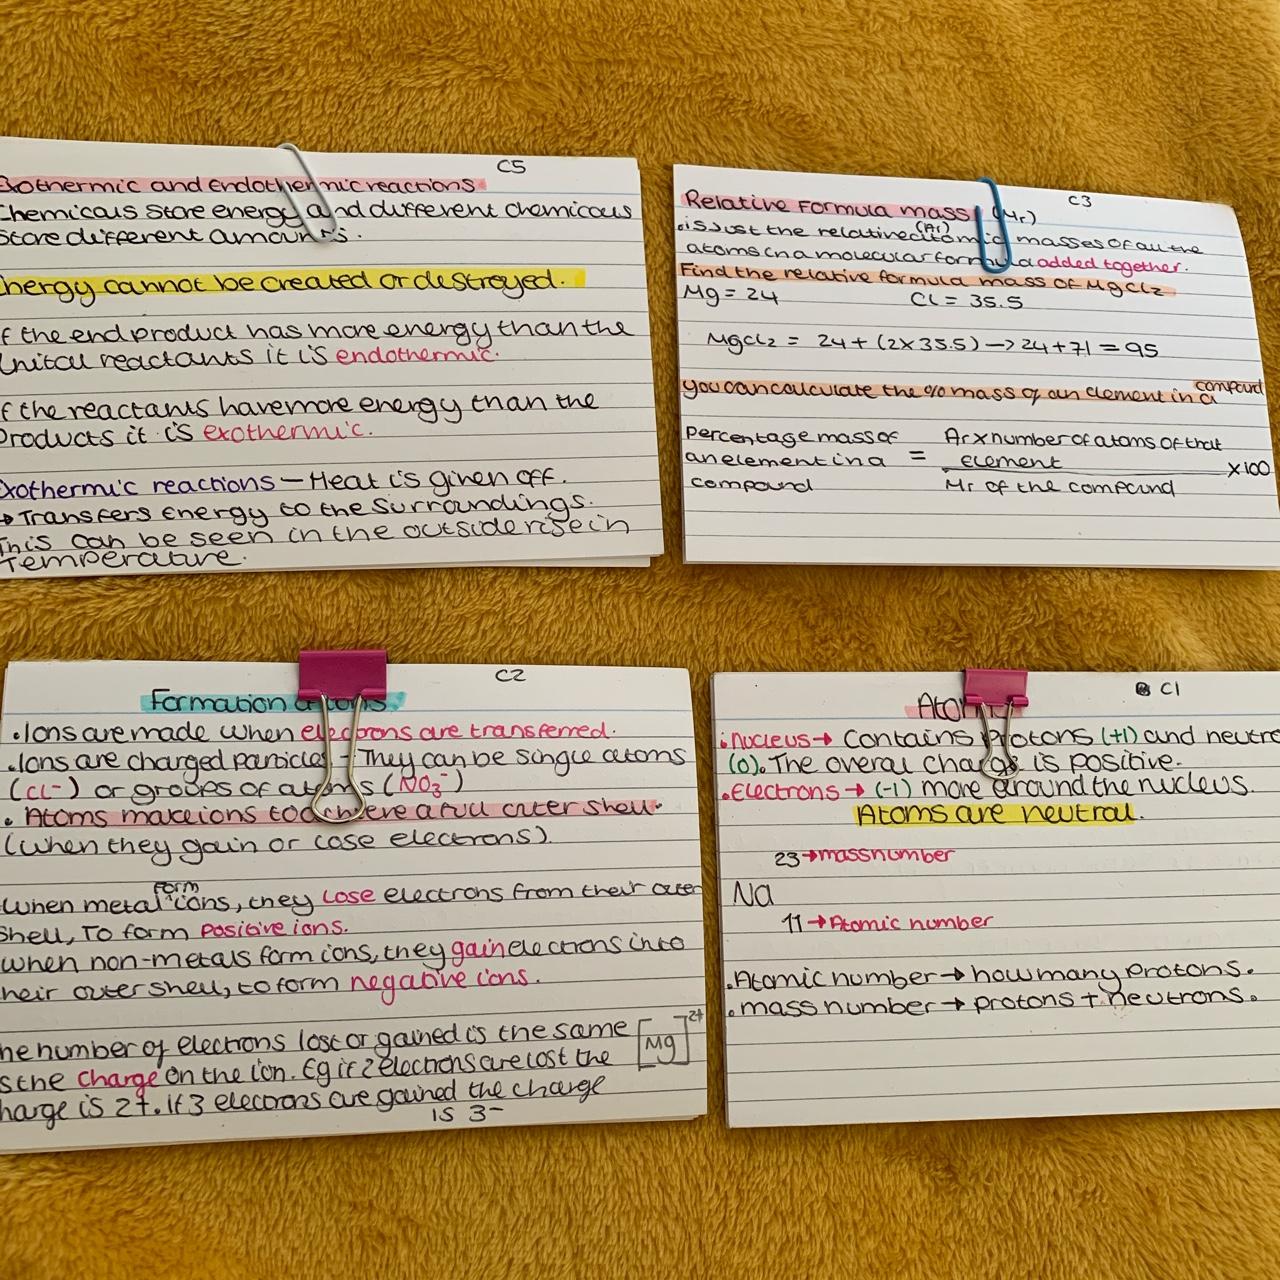 C5
Exothermic and Endothermic reactions
Chemicals store energy and different chemicals
store different amounts.
Energy cannot be created or destroyed.
If the end product has more energy than the
inital reactants it is endothermic.
If the reactants have more energy than the
products it is exothermic.
Exothermic reactions - Heat is given off.
→ Transfers energy to the surroundings.
This can be seen in the outside rise in
Temperature.
C3
Relative Formula mass (Mr)
• is just the relative atomic (Ar) masses of all the
atoms in a molecular formula added together.
Find the relative formula mass of MgCl2
Mg = 24 Cl = 35.5
MgCl2 = 24 + (2 x 35.5) → 24 + 71 = 95
you can calculate the % mass of an element in a compound
Percentage mass of an element in a compound = Ar x number of atoms of that element / Mr of the compound x 100
C2
Formation of ions
• Ions are made when electrons are transferred.
• Ions are charged particles - They can be single atoms
(Cl⁻) or groups of atoms (NO₃⁻)
• Atoms make ions to achieve a full outer shell.
(when they gain or lose electrons).
When metal form ions, they lose electrons from their outer
shell, To form positive ions.
when non-metals form ions, they gain electrons into
their outer shell, to form negative ions.
The number of electrons lost or gained is the same
as the charge on the ion. Eg if 2 electrons are lost the
charge is 2+. If 3 electrons are gained the charge
is 3-
[Mg]²⁺
C1
• Nucleus → contains protons (+1) and neutro
(0). The overal charge is positive.
• Electrons → (-1) move around the nucleus.
Atoms are neutral.
23 → mass number
Na
11 → Atomic number
• Atomic number → how many protons.
• mass number → protons + neutrons.